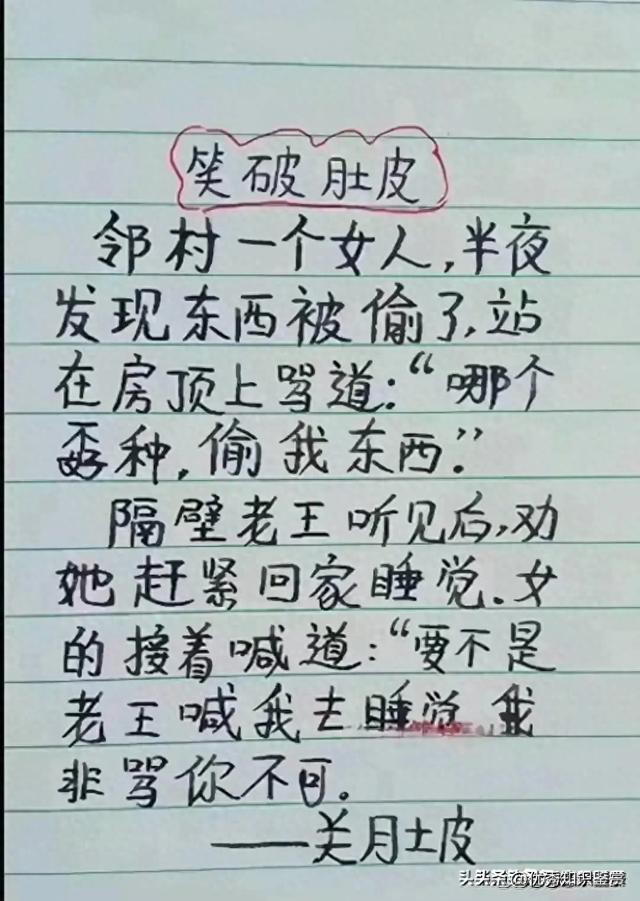 笑破肚皮
邻村一个女人,半夜
发现东西被偷了,站
在房顶上骂道:“哪个
孬种,偷我东西.”
隔壁老王听见后,劝
她赶紧回家睡觉.女
的接着喊道:“要不是
老王喊我去睡觉 我
非骂你不可。
——美月土皮
头条 @优秀知识鉴赏